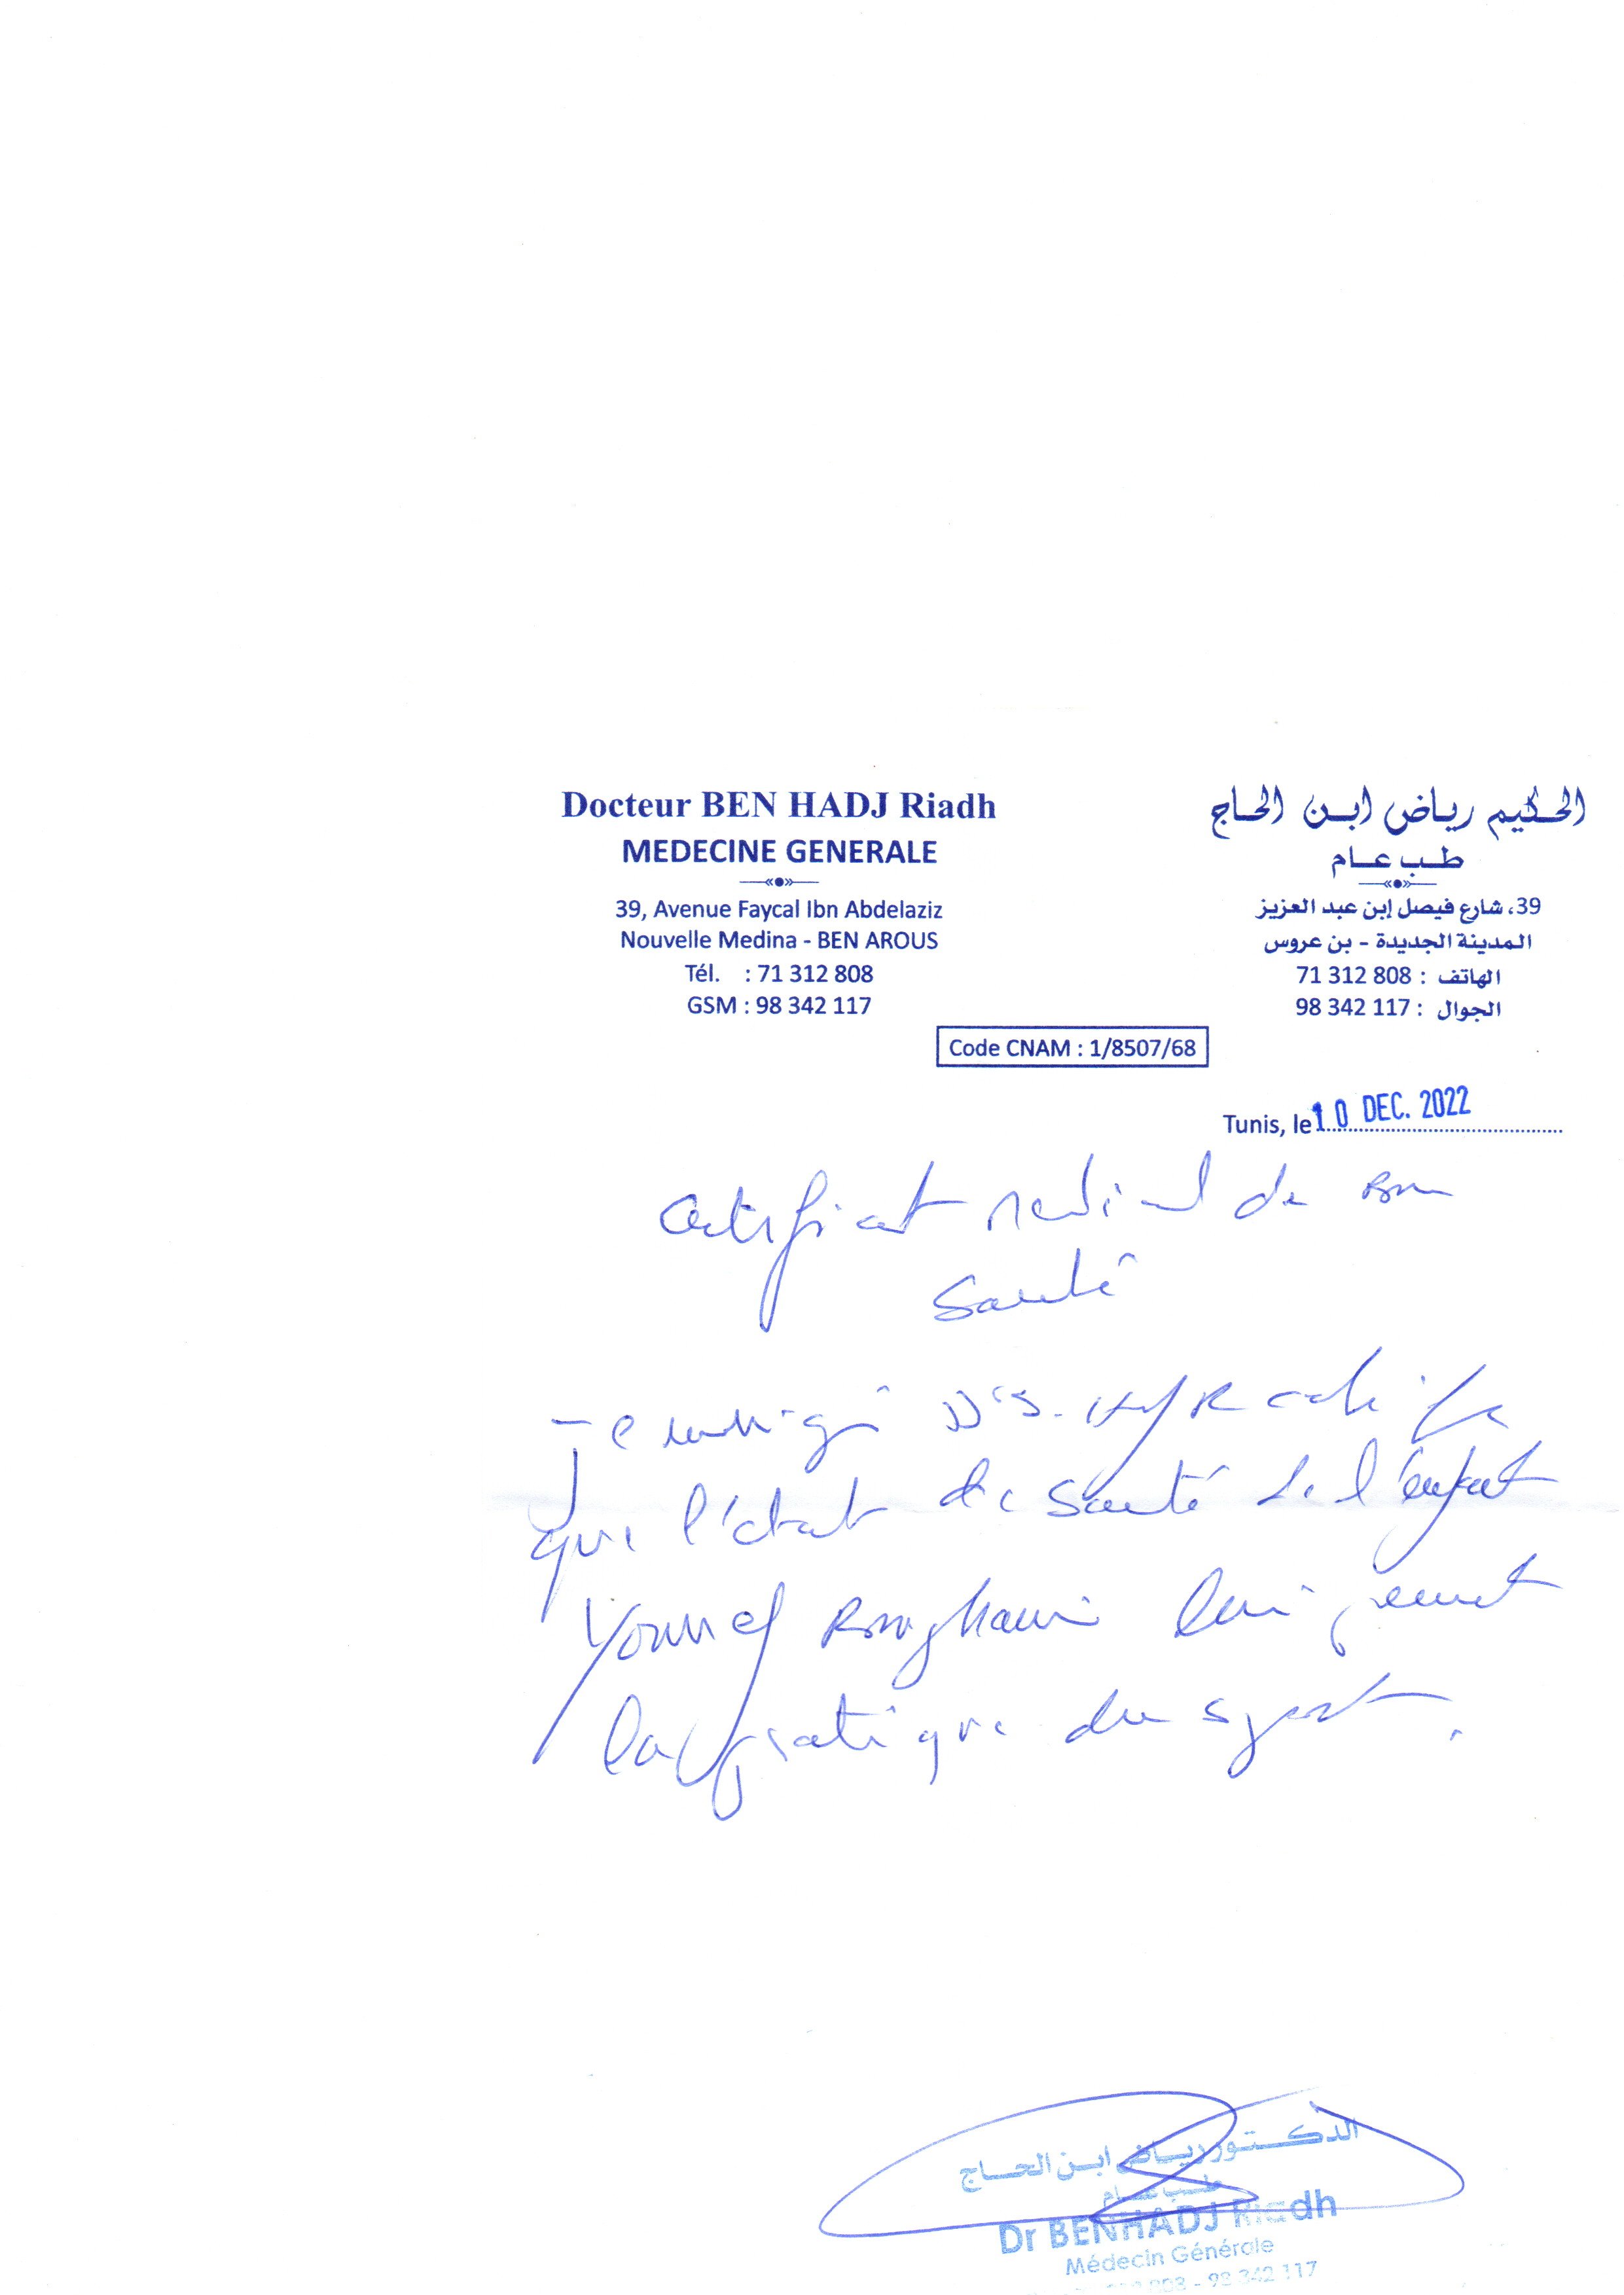 Docteur BEN HADJ Riadh
MEDECINE GENERALE
39, Avenue Faycal Ibn Abdelaziz
Nouvelle Medina - BEN AROUS
Tél. : 71 312 808
GSM : 98 342 117
الحكيم رياض ابن الحاج
طب عام
39، شارع فيصل إبن عبد العزيز
المدينة الجديدة - بن عروس
الهاتف : 71 312 808
الجوال : 98 342 117
Code CNAM : 1/8507/68
Tunis, le 10 DEC. 2022
Certificat medical de Bonne
Santé
Je certifie
que l'état de santé de l'enfant
Youssef lui permet
la pratique du sport.
الدكتور رياض ابن الحاج
طب عام
Dr BENHADJ Riadh
Médecin Générale
98 342 117